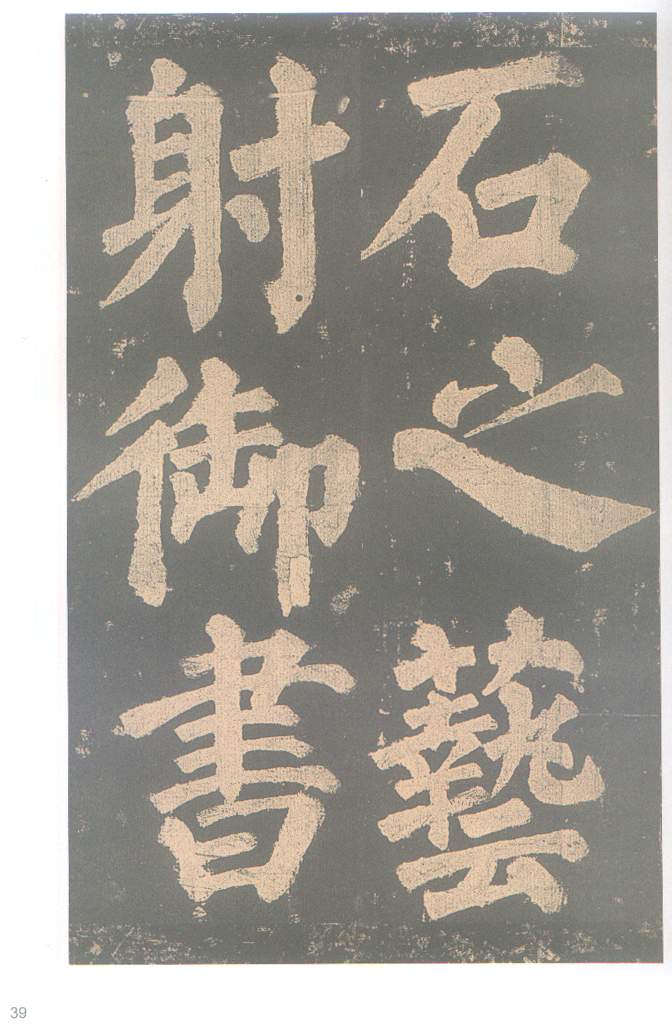 石之藝
射御書
39